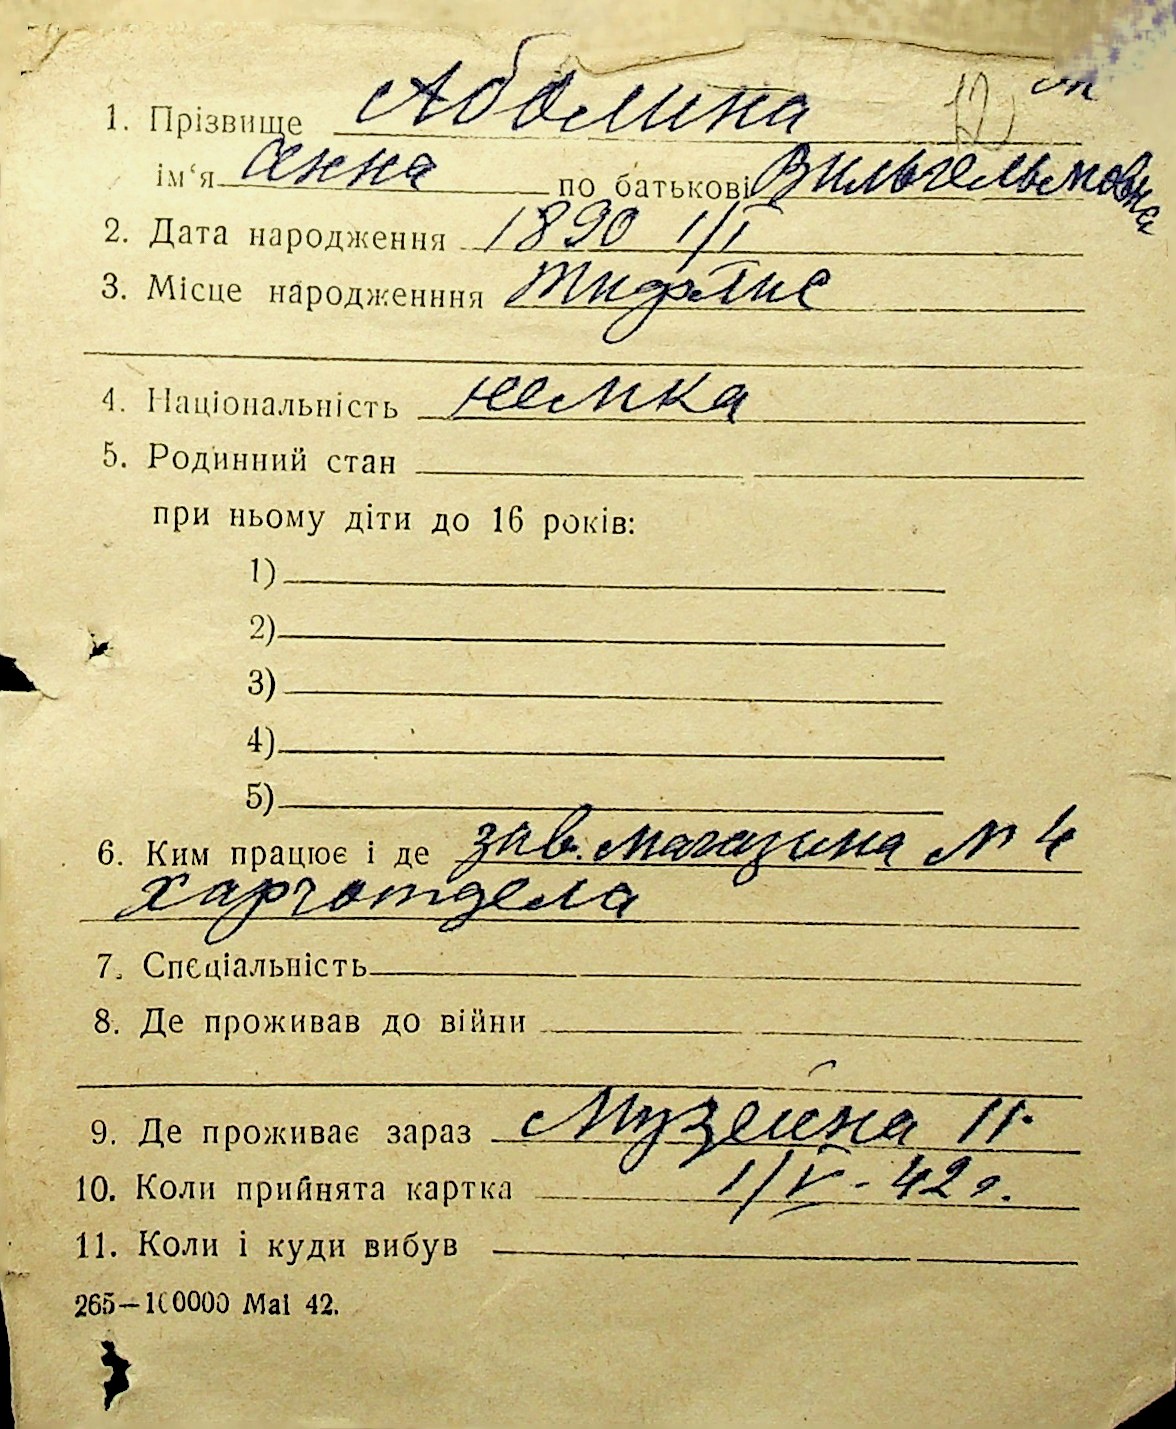 1. Прізвище Аболина
ім'я Анна по батькові Вильгельмовна
2. Дата народження 1890 1/I
3. Місце народженння Тифлис
4. Національність немка
5. Родинний стан
при ньому діти до 16 років:
1)
2)
3)
4)
5)
6. Ким працює і де зав. магазина № 4
харчотдела
7. Спєціальність
8. Де проживав до війни
9. Де проживає зараз Музейна 11.
10. Коли прийнята картка 1/V - 42 г.
11. Коли і куди вибув
265—100000 Mai 42.